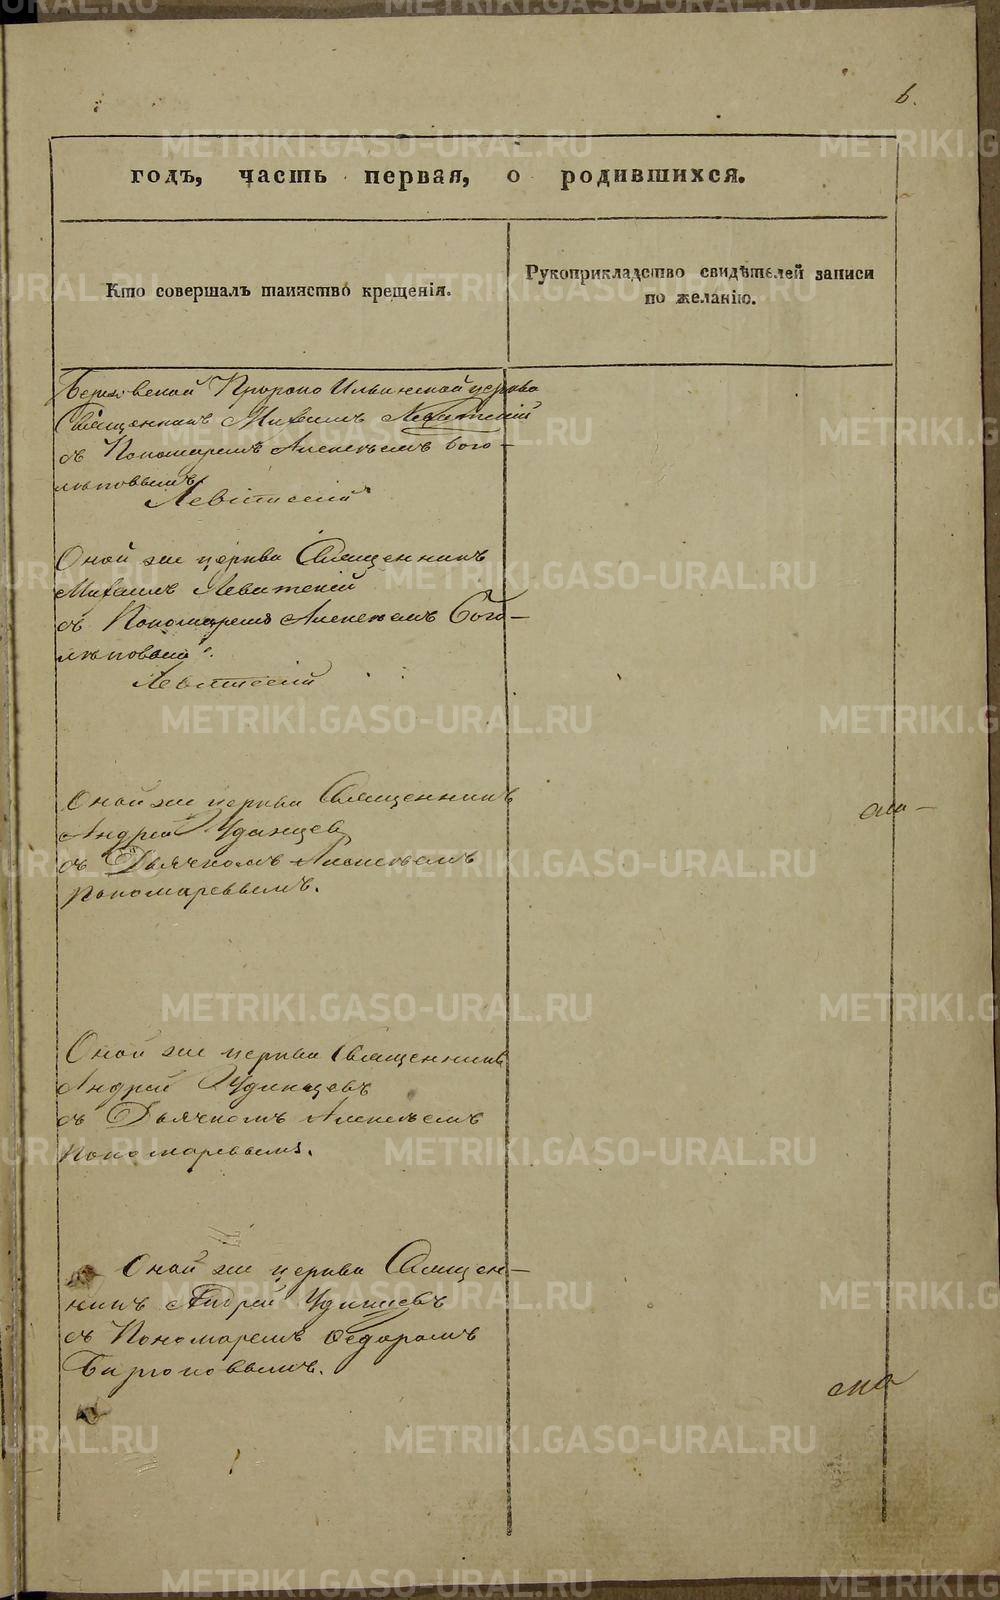 6.
годъ, часть первая, о родившихся.
Кто совершалъ таинство крещенія.
Рукоприкладство свидѣтелей записи
по желанію.
Пророко Ильинской церкви
Священникъ Михаилъ Левитскій
съ Пономаремъ Алексѣемъ Бого-
лѣповымъ
Левитскій
Оной же церкви Священникъ
Михаилъ Левитскій
съ Пономаремъ Алексѣемъ Бого-
лѣповымъ.
Левитскій
Оной же церкви Священникъ
Андрей Удинцевъ
съ Дьячкомъ Алексѣемъ
Пономаревымъ.
Оной же церкви Священникъ
Андрей Удинцевъ
съ Дьячкомъ Алексѣемъ
Пономаревымъ.
Оной же церкви Священ-
никъ Андрей Удинцевъ
съ Пономаремъ Ѳедоромъ
Бирюковымъ.
METRIKI.GASO-URAL.RU